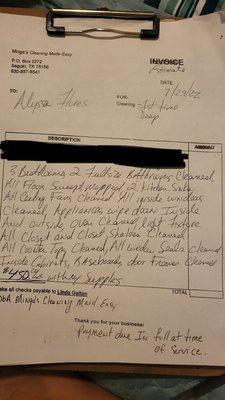 Minga's Cleaning Made Easy
P.O. Box 2272
Seguin, TX 78156
830-857-9541
INVOICE
Estimate
7/29/22
TO:
Alyssa Flores
FOR:
Cleaning 1st time
Deep
DESCRIPTION
AMOUNT
3 Bedrooms, 2 full size Bathrooms Cleaned
All Floor Sweept, mopped, 2 Kitchen Sinks
All Ceiling Fans Cleaned All inside windows
Cleaned, Appliances wipe down Inside
And outside, Oven Cleaned, light fixture
All Closet and Closet Shelves Cleaned
All Window Tops Cleaned, All window Seals Cleaned
Inside Cabinets, Baseboards, door Frames Cleaned
$450 with my Supplies
TOTAL
ake all checks payable to Linda Galtan
DbA Minga's Cleaning Maid Easy
Thank you for your business!
Payment due In full at time
of Service.